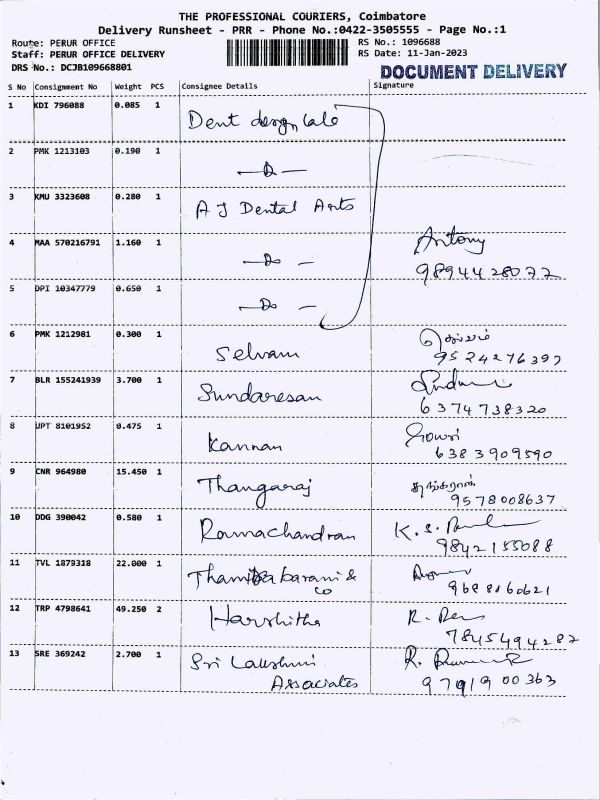 THE PROFESSIONAL COURIERS, Coimbatore
Delivery Runsheet - PRR - Phone No.:0422-3505555 - Page No.:1
Route: PERUR OFFICE
RS No.: 1096688
Staff: PERUR OFFICE DELIVERY
RS Date: 11-Jan-2023
DRS No.: DCJB109668801
DOCUMENT DELIVERY
S No Consignment No Weight PCS Consignee Details Signature
1 KDI 796088 0.085 1 Dent design Lab
2 PMK 1213103 0.190 1 — D —
3 KMU 3323608 0.280 1 A J Dental Arts
4 MAA 570216791 1.160 1 — Do — Antony
9894428077
5 DPI 10347779 0.650 1 — Do —
6 PMK 1212981 0.300 1 Selvam செல்வம்
9524276397
7 BLR 155241939 3.700 1 Sundaresan
6374738320
8 UPT 8101952 0.475 1 Kannan
6383909590
9 CNR 964980 15.450 1 Thangaraj தங்கராஜ்
9578008637
10 DDG 390042 0.580 1 Ramachandran K. S.
9842155088
11 TVL 1879318 22.000 1 Thamirabarani &
Co
9688860621
12 TRP 4798641 49.250 2 Harshitha R.
7845494287
13 SRE 369242 2.700 1 Sri Lakshmi R.
Associates 9791900363